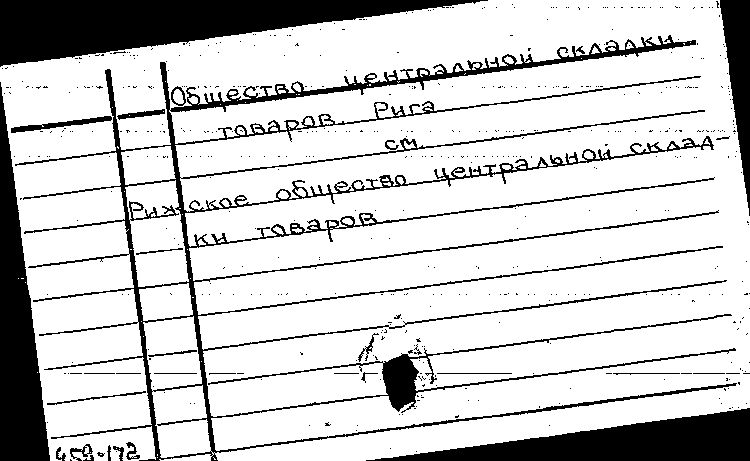 Общество центральной складки
товаров. Рига
см.
Рижское общество центральной склад-
ки товаров
459-172